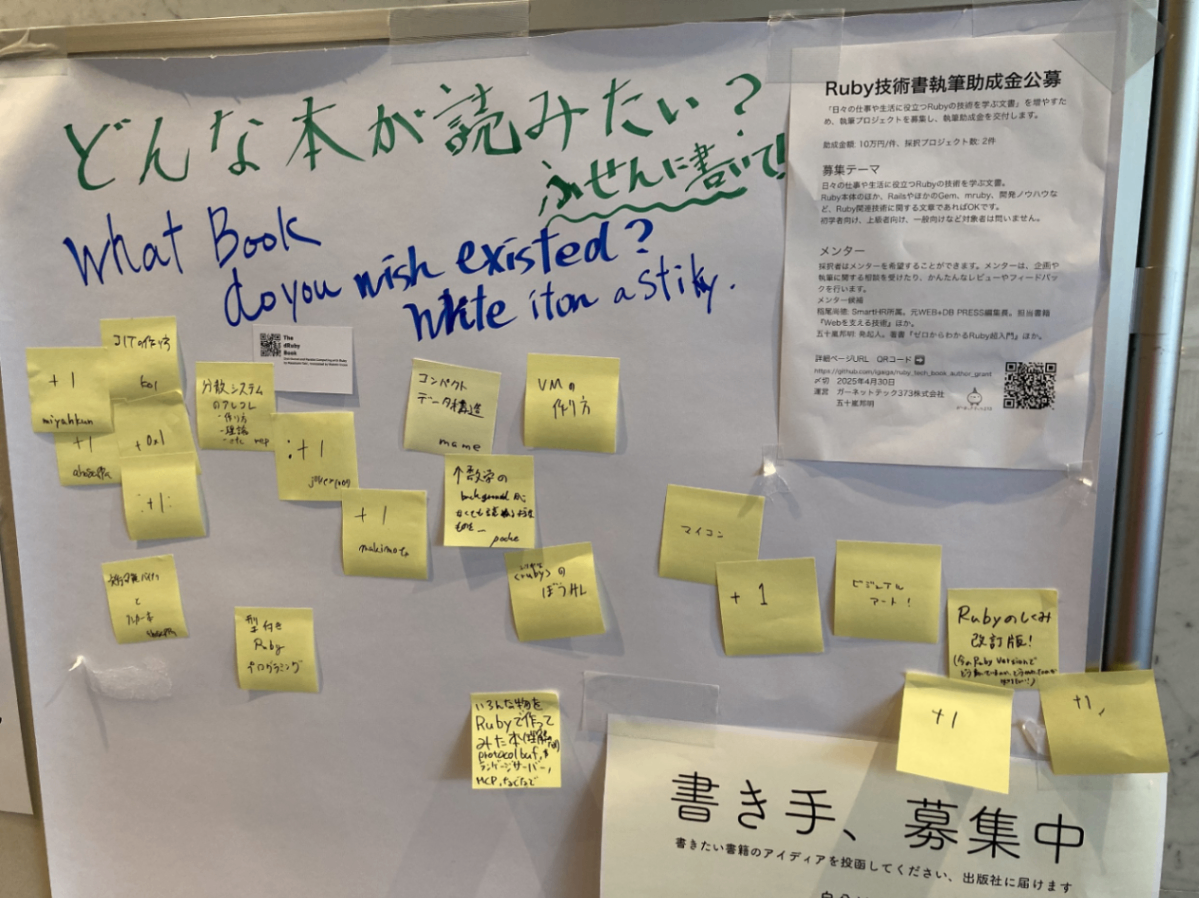 どんな本が読みたい？
ふせんに書いて！
What Book
do you wish existed?
Write it on a stiky.
Ruby技術書執筆助成金公募
「日々の仕事や生活に役立つRubyの技術を学ぶ文書」を増やすため、執筆プロジェクトを募集し、執筆助成金を交付します。
助成金額: 10万円/件、採択プロジェクト数: 2件
募集テーマ
日々の仕事や生活に役立つRubyの技術を学ぶ文書。
Ruby本体のほか、RailsやほかのGem、mruby、開発ノウハウなど、Ruby関連技術に関する文章であればOKです。
初学者向け、上級者向け、一般向けなど対象者は問いません。
メンター
採択者はメンターを希望することができます。メンターは、企画や執筆に関する相談を受けたり、かんたんなレビューやフィードバックを行います。
メンター候補
稲尾尚徳: SmartHR所属。元WEB+DB PRESS編集長。担当書籍『Webを支える技術』ほか。
五十嵐邦明: 発起人。著書『ゼロからわかるRuby超入門』ほか。
詳細ページURL QRコード
https://github.com/igaiga/ruby_tech_book_author_grant
〆切 2025年4月30日
運営 ガーネットテック373株式会社
五十嵐邦明
The
dRuby
Book
JITの作り方
+1
miyahkun
+1
+1
分散システム
のアレコレ
・作り方
・理論
+1
コンパクト
データ構造
mame
VMの
作り方
↑数学の
background が
なくても
+1
makimoto
のぼうけん
マイコン
+1
ビジュアル
アート！
Rubyのしくみ
改訂版！
+1
+1
と
型付き
Ruby
プログラミング
いろんな物を
Rubyで作って
みた本
protocol buf,
ランゲージサーバー,
MCP, などなど
書き手、募集中
書きたい書籍のアイディアを投函してください、出版社に届けます